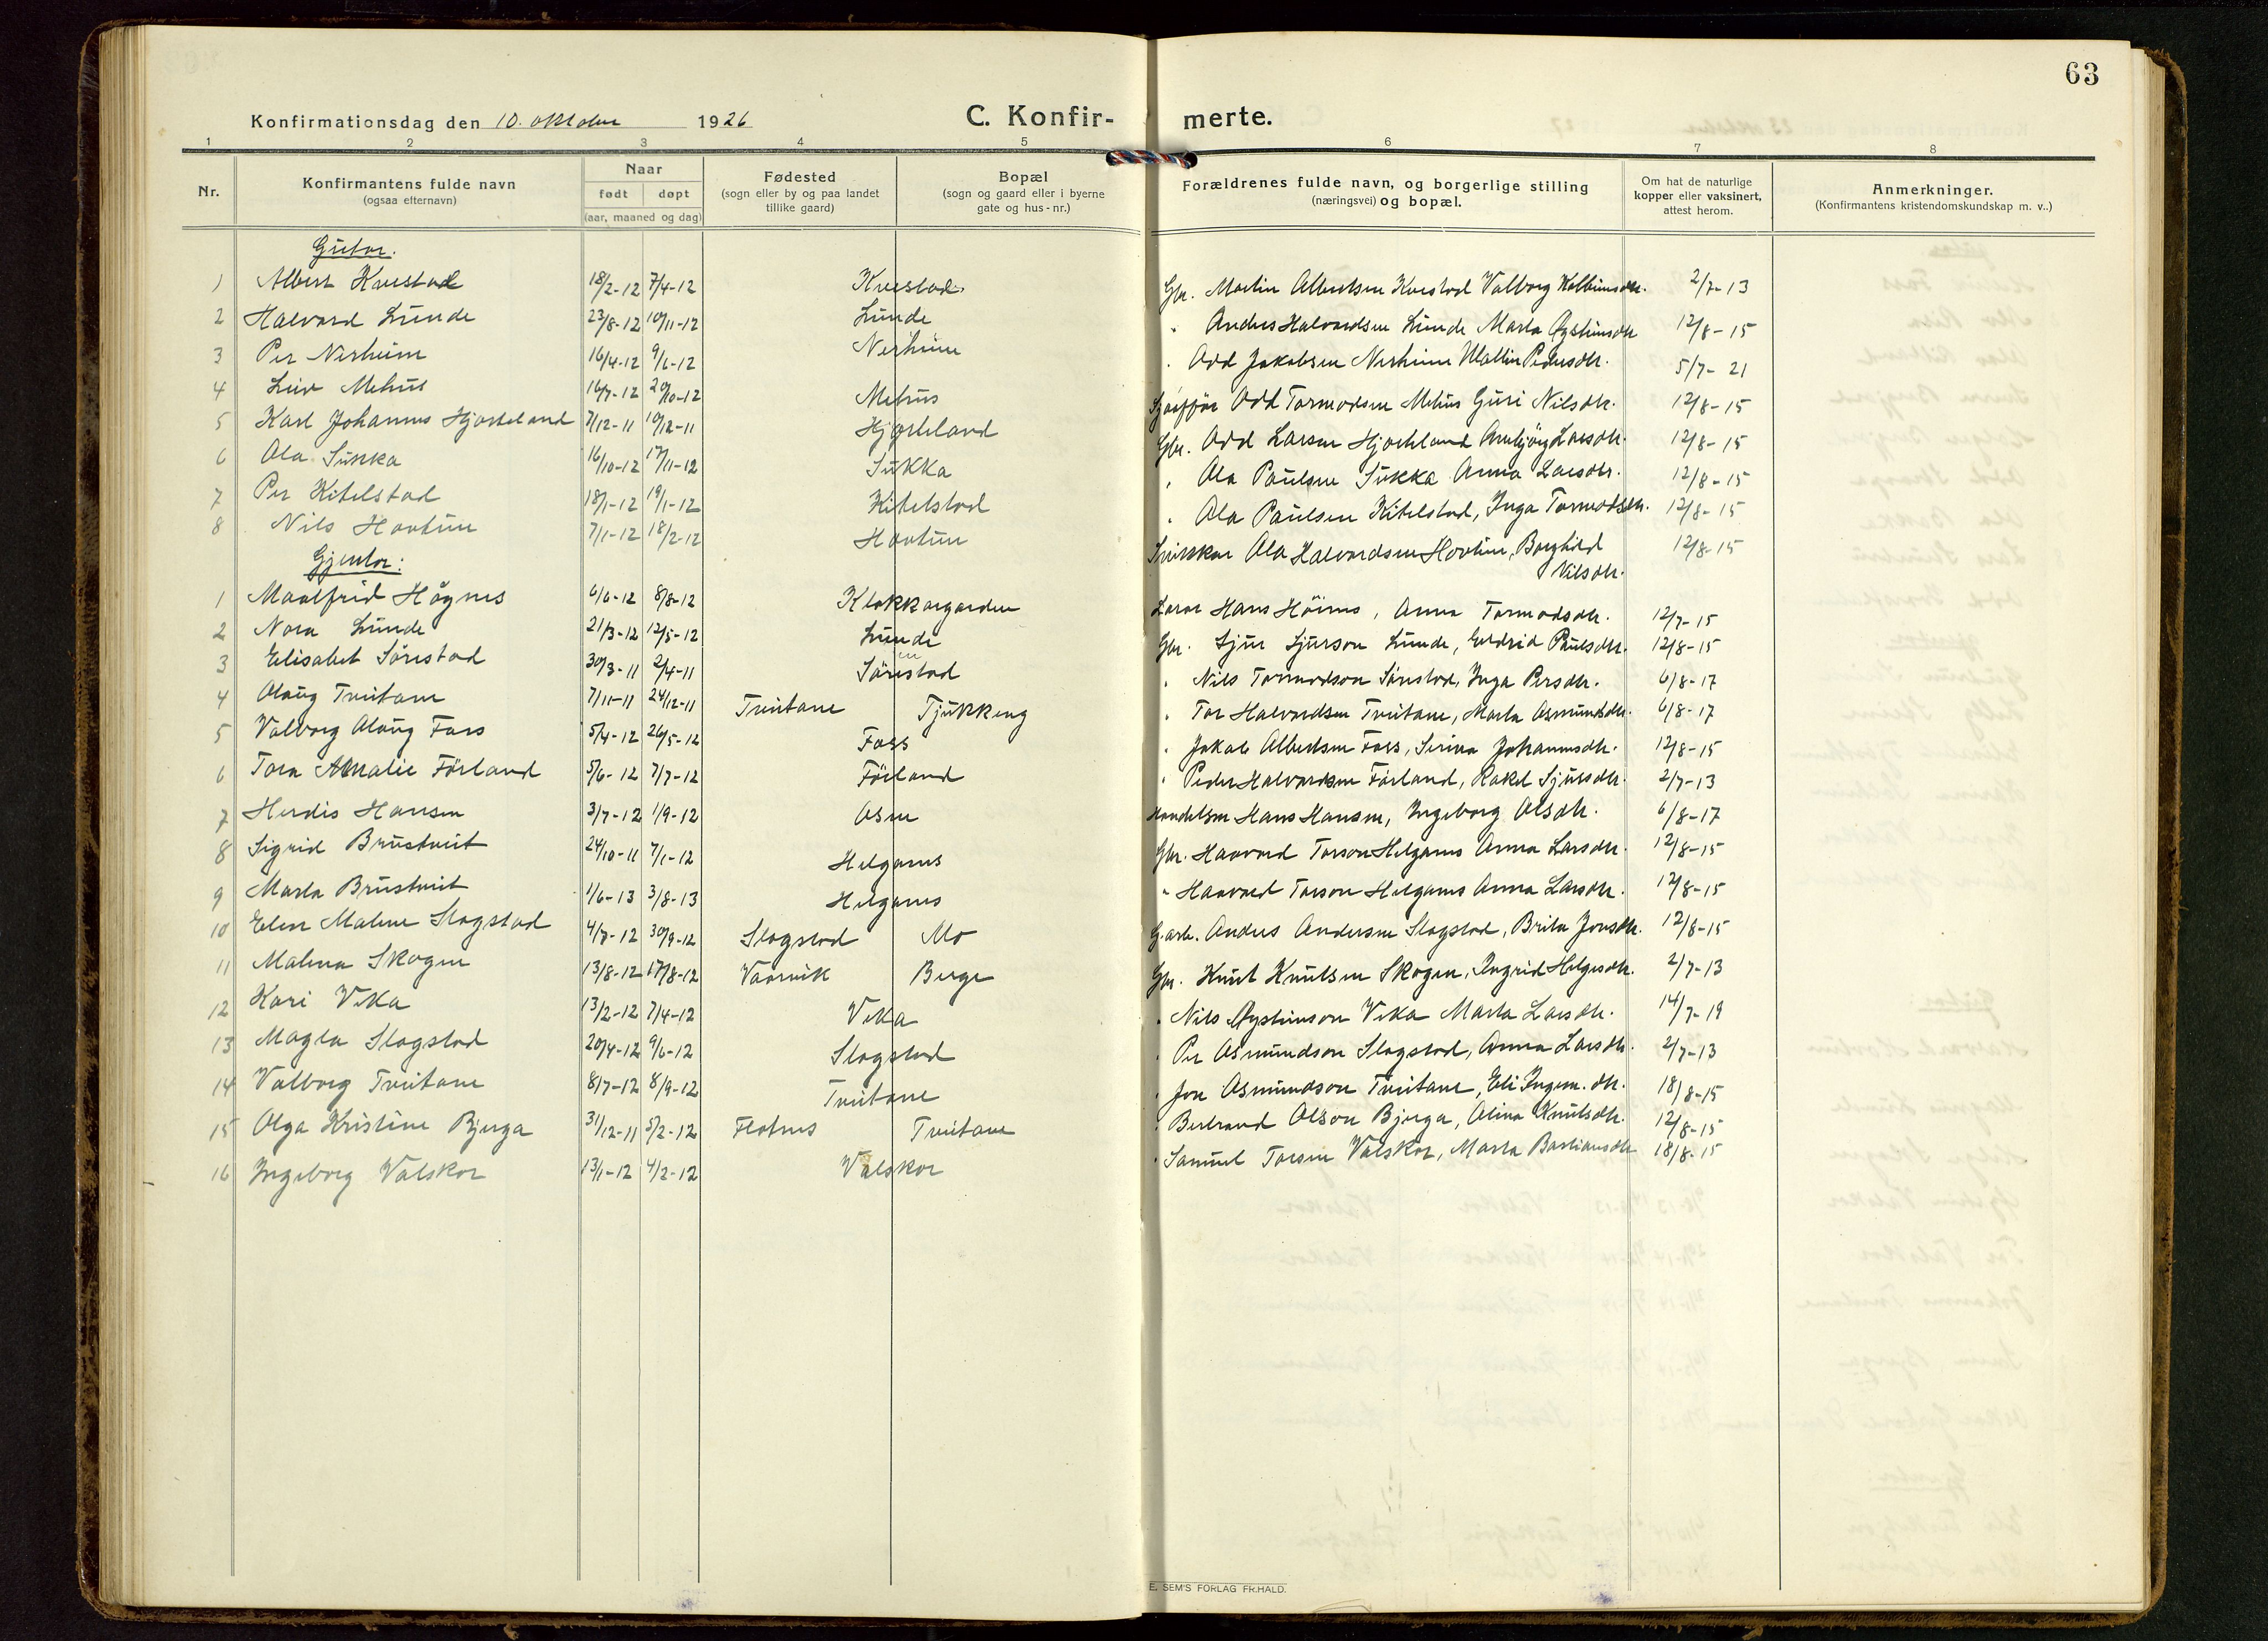 63
Konfirmationsdag den 10. oktober 1926
C. Konfirmerte.
1 2 3 4 5 6 7 8
Nr. Konfirmantens fulde navn (ogsaa efternavn) Naar født døpt (aar, maaned og dag) Fødested (sogn eller by og paa landet tillike gaard) Bopæl (sogn og gaard eller i byerne gate og hus-nr.) Forældrenes fulde navn, og borgerlige stilling (næringsvei) og bopæl. Om hat de naturlige kopper eller vaksinert, attest herom. Anmerkninger. (Konfirmantens kristendomskundskap m. v..)
Gutar.
1 Albert Kvestad 18/2-12 7/4-12 Kvestad. Gbr. Martin Albertsen Kvestad Valborg 2/7-13
2 Halvard Lunde 23/8-12 10/11-12 Lunde " Anders Halvardsen Lunde Marta Øysteinsdtr 12/8-15
3 Per Nerheim 16/4-12 9/6-12 Nerheim " Odd Jakobsen Nerheim Mallin Pedersdtr. 5/7-21
4 Leiv Mehus 16/7-12 20/10-12 Mehus Odd Tormodsen Mehus Guri Nilsdtr. 12/8-15
5 Karl Johannes Hjorteland 7/12-11 10/12-11 Hjorteland Gbr. Odd Larsen Hjorteland Ambjørg Larsdtr. 12/8-15
6 Ola Sukka 16/10-12 17/11-12 Sukka " Ola Paulsen Sukka Anna Larsdtr. 12/8-15
7 Per Kitelstad 18/1-12 19/1-12 Kitelstad " Ola Paulsen Kitelstad, Inga Tormodsdtr. 12/8-15
8 Nils Hovtun 7/1-12 18/2-12 Hovtun Snikkar Ola Halvardsen Hovtun, Borghild Nilsdtr. 12/8-15
Gjentor:
1 Maalfrid Høgnes 6/6-12 8/8-12 Klokkargarden Lærar Hans Høines, Anna Tormodsdtr. 12/7-15
2 Nora Lunde 21/3-12 12/5-12 Lunde Gbr. Sjur Sjurson Lunde, Eldrid Paulsdtr. 12/8-15
3 Elisabet Sørestad 30/3-11 2/4-11 Sørestad " Nils Tormodson Sørestad, Inga Persdtr. 6/8-17
4 Olaug Tveitane 7/11-11 24/12-11 Tveitane Tjukkeng " Tor Halvardsen Tveitane, Marta Asmundsdtr. 6/8-17
5 Valborg Olaug Foss 5/4-12 26/5-12 Foss " Jakob Albertsen Foss, Serina Johannesdtr. 12/8-15
6 Tora Amalie Førland 5/6-12 7/7-12 Førland " Peder Halvardsen Førland, Rakel Sjursdtr. 2/7-13
7 Herdis Hansen 3/7-12 1/9-12 Osen Handelsm Hans Hansen, Ingeborg Olsdtr. 6/8-17
8 Sigrid Brustveit 24/10-11 7/1-12 Helganes Gbr. Haavard Torson Helganes Anna Larsdtr. 12/8-15
9 Marta Brustveit 1/6-13 3/8-13 Helganes " Haavard Torson Helganes Anna Larsdtr. 12/8-15
10 Elen Malene Slogstad 4/8-12 30/9-12 Slogstad Mo G.arb. Anders Andersen Slogstad, Brita Jonsdtr. 12/8-15
11 Malena Skogen 13/8-12 17/8-12 Vaarvik Berge Gbr. Knut Knutsen Skogen, Ingrid Helgesdtr. 2/7-13
12 Kari Vika 13/2-12 7/4-12 Vika " Nils Øysteinson Vika Marta Larsdtr. 14/7-19
13 Magla Slogstad 20/4-12 9/6-12 Slogstad " Per Osmundson Slogstad, Anna Larsdtr. 2/7-13
14 Valborg Tveitane 8/7-12 8/9-12 Tveitane " Jon Osmundson Tveitane, Eli Ingem. dtr. 18/8-15
15 Olga Kristine Bjerga 31/12-11 5/2-12 Flotnes Tveitane " Bertrand Olson Bjerga, Olina Knutsdtr. 12/8-15
16 Ingeborg Valskor 13/1-12 4/2-12 Valskor " Samuel Torsen Valskor, Marta Bastiansdtr 18/8-15
E. SEM'S FORLAG FR.HALD.